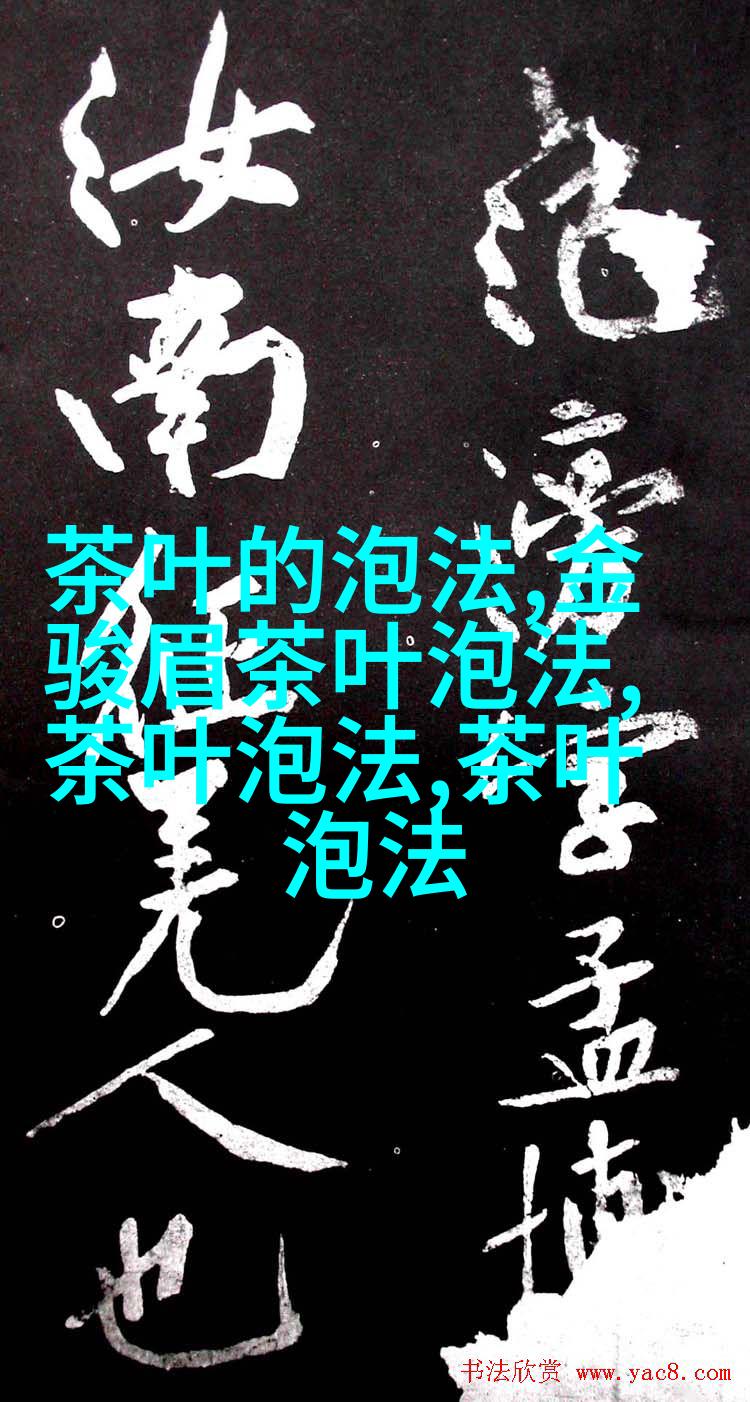 范滂字孟博
汝南征羌人也
茶叶的泡法,金
骏眉茶叶泡法,
茶叶泡法,茶叶
泡法
书法欣赏 www.yac8.com